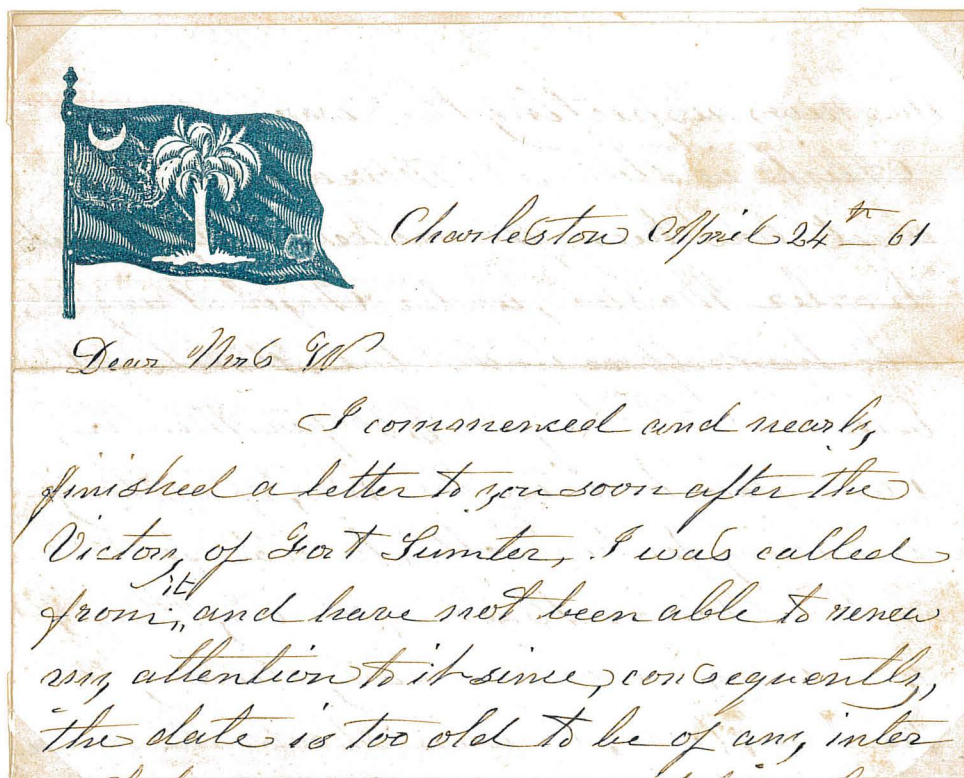 Charleston April 24th 61
Dear Mrs W
I commenced and nearly
finished a letter to you soon after the
Victory of Fort Sumter, I was called
from it, and have not been able to renew
my attention to it since, consequently,
the date is too old to be of any inter